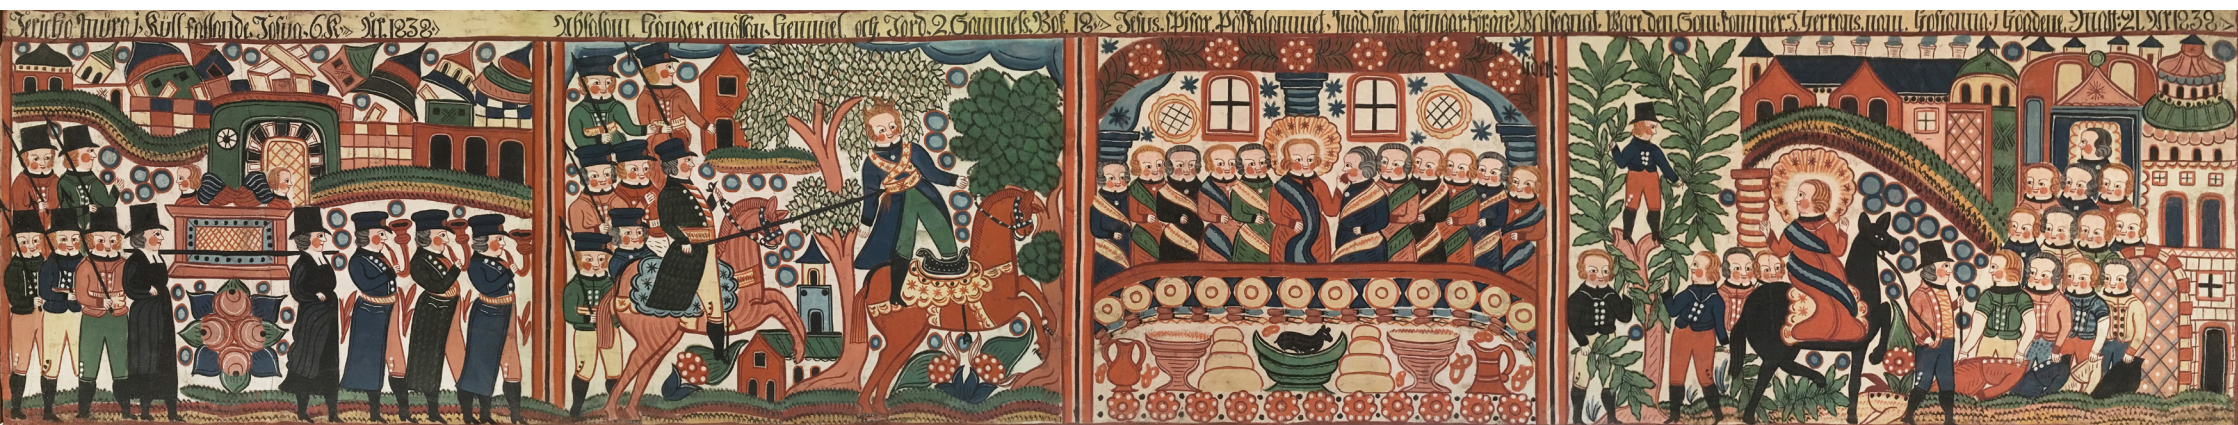 Jericho, Mura, i, Kull fallande, Josua. 6. K. År. 1838.
Absalom. Hänger. emällan. Hemmel och. Jord. 2. Samuels. Bok. 18.
Jesus. Spisar. Påskalammet. Mäd. sina. läringar
Wälsegnat. Ware. den. Som. kommer. i. Herrans. nam. Hosianna. i. Högdene. Matt. 21. År 1838.